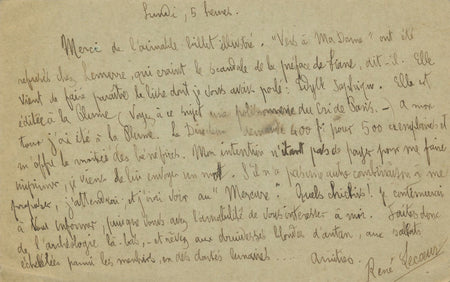 Lundi, 5 heures.
Merci de l'aimable billet illustré. "Vers à Ma Dame" ont été
refusés chez Lemerre, qui craint le scandale de la préface de Liane, dit-il. Elle
vient de faire paraître le livre dont je vous avais parlé: Idylle Saphique. Elle est
éditée à la Plume (Voyez à ce sujet une polissonnerie du Cri de Paris. — à mon
tour j'ai été à la Plume. Le Directeur demande 400 f. pour 500 exemplaires et
m'offre la moitié des bénéfices. Mon intention n'étant pas de payer pour me faire
imprimer, je viens de lui envoyer un mot. S'il n'a pas une autre combinaison à me
proposer, j'attendrai et j'irai voir au "Mercure". Quels chichis! Je continuerai
à vous informer, puisque vous avez l'amabilité de vous intéresser à moi. Faites donc
de l'archéologie là-bas, — et rêvez aux druidesses blondes d'antan, aux
échevelées parmi les menhirs, en des clartés lunaires .... Amitiés.
René